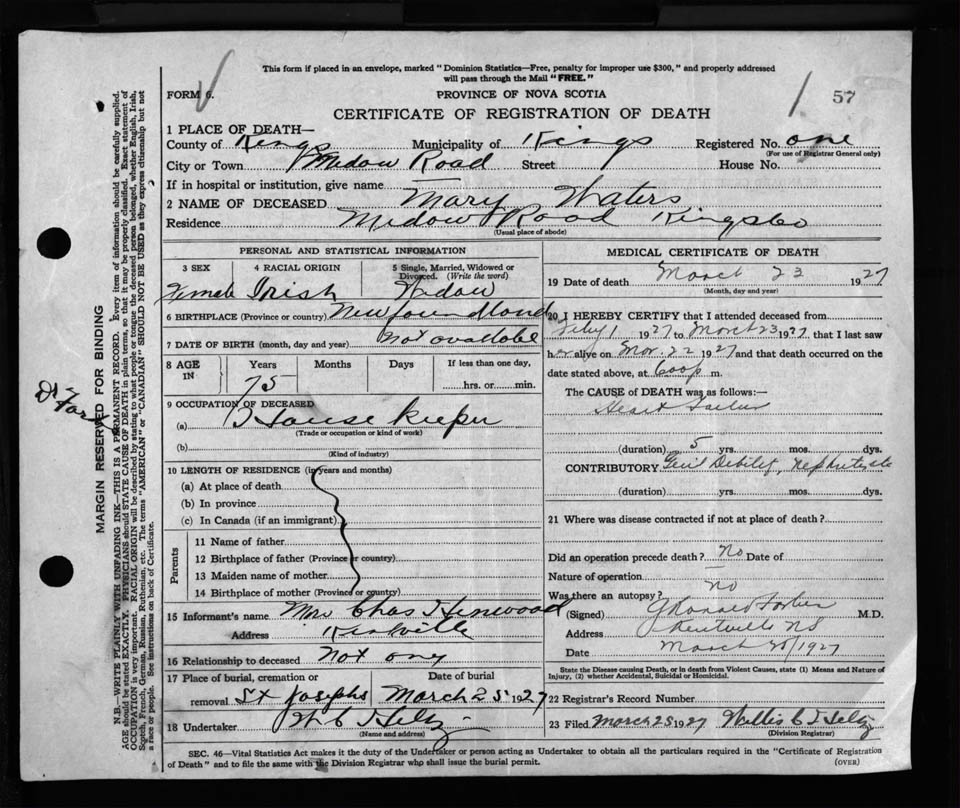 This form if placed in an envelope, marked "Dominion Statistics—Free, penalty for improper use $300," and properly addressed
will pass through the Mail "FREE."
FORM 6.
PROVINCE OF NOVA SCOTIA
57
CERTIFICATE OF REGISTRATION OF DEATH
1 PLACE OF DEATH—
County of Kings Municipality of Kings Registered No. one
(For use of Registrar General only)
City or Town Medow Road Street House No.
If in hospital or institution, give name
2 NAME OF DECEASED Mary Waters
Residence Medow Road Kings Co
(Usual place of abode)
PERSONAL AND STATISTICAL INFORMATION
3 SEX 4 RACIAL ORIGIN 5 Single, Married, Widowed or Divorced. (Write the word)
Female Irish Widow
6 BIRTHPLACE (Province or country) Newfoundland
7 DATE OF BIRTH (month, day and year) Not avallable
8 AGE IN Years Months Days If less than one day,
75 hrs. or min.
9 OCCUPATION OF DECEASED
(a) House Keeper
(Trade or occupation or kind of work)
(b)
(Kind of industry)
10 LENGTH OF RESIDENCE (in years and months)
(a) At place of death
(b) In province
(c) In Canada (if an immigrant)
Parents
11 Name of father
12 Birthplace of father (Province or country)
13 Maiden name of mother
14 Birthplace of mother (Province or country)
15 Informant's name Mrs Chas Henwood
Address Kentville
16 Relationship to deceased Not any
17 Place of burial, cremation or removal St Josephs
Date of burial March 25 1927
18 Undertaker W C Hiltz
(Name and address)
MEDICAL CERTIFICATE OF DEATH
19 Date of death March 23 1927
(Month, day and year)
20 I HEREBY CERTIFY that I attended deceased from
1 1927 to March 23 1927, that I last saw
her alive on Mar. 22 1927 and that death occurred on the
date stated above, at 600 p m.
The CAUSE of DEATH was as follows:
Heart Failure
(duration) 5 yrs. mos. dys.
CONTRIBUTORY Gen'l Debility,
(duration) yrs. mos. dys.
21 Where was disease contracted if not at place of death?
Did an operation precede death? No Date of
Nature of operation
Was there an autopsy? No
(Signed) M.D.
Address Kentville NS
Date March 25/1927
State the Disease causing Death, or in death from Violent Causes, state (1) Means and Nature of
Injury, (2) whether Accidental, Suicidal or Homicidal.
22 Registrar's Record Number
23 Filed March 25 1927 Willis C Hiltz
(Division Registrar)
SEC. 46—Vital Statistics Act makes it the duty of the Undertaker or person acting as Undertaker to obtain all the particulars required in the "Certificate of Registration
of Death" and to file the same with the Division Registrar who shall issue the burial permit. (OVER)
MARGIN RESERVED FOR BINDING
N.B.—WRITE PLAINLY WITH UNFADING INK—THIS IS A PERMANENT RECORD. Every item of information should be carefully supplied.
AGE should be stated EXACTLY. PHYSICIANS should STATE CAUSE OF DEATH in plain terms, so that it may be properly classified. Exact statement of
OCCUPATION is very important. RACIAL ORIGIN will be described by stating to what people or tongue the deceased person belonged, whether English, Irish,
Scotch, French, German, Russian, Ruthenian, etc. The terms "AMERICAN" or "CANADIAN" SHOULD NOT BE USED as they express citizenship but not
a race or people. See instructions on back of Certificate.